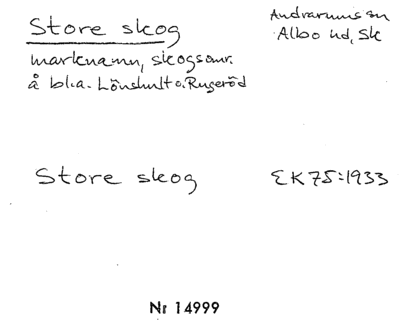 Store skog
Andrarums sn
Albo hd, Sk
marknamn, skogsomr.
å bl.a. Lönshult o. Rugeröd
Store skog
EK75:1933
Nr 14999